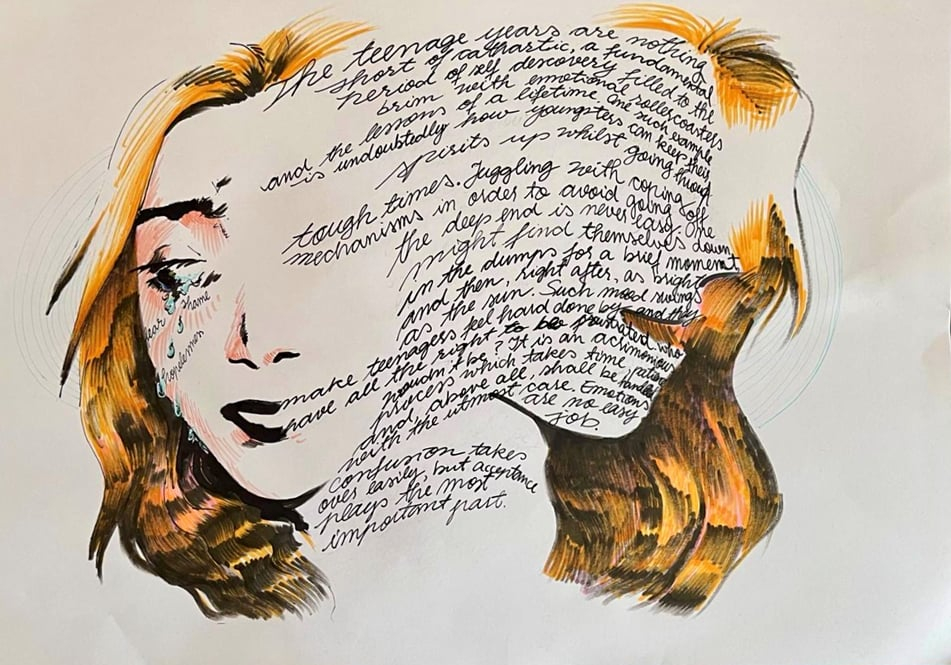 The teenage years are nothing
short of cathartic, a fundamental
period of self descovery filled to the
brim with emotional rollercoasters
and the lessons of a lifetime. One such example
is undoubtedly how youngsters can keep their
spirits up whilst going through
tough times. Juggling with coping
mechanisms in order to avoid going off
the deep end is never easy. One
might find themselves down
in the dumps for a brief moment,
and then, right after, as bright
as the sun. Such mood swings
make teenagers feel hard done by and they
have all the right to be frustrated, who
woudn't be? It is an acrimonious
process which takes time, patience
and, above all, shall be handled
with the utmost care. Emotions
are no easy
job.
confusion takes
over easily, but acceptance
plays the most
important part.
shame
fear
hopelessness